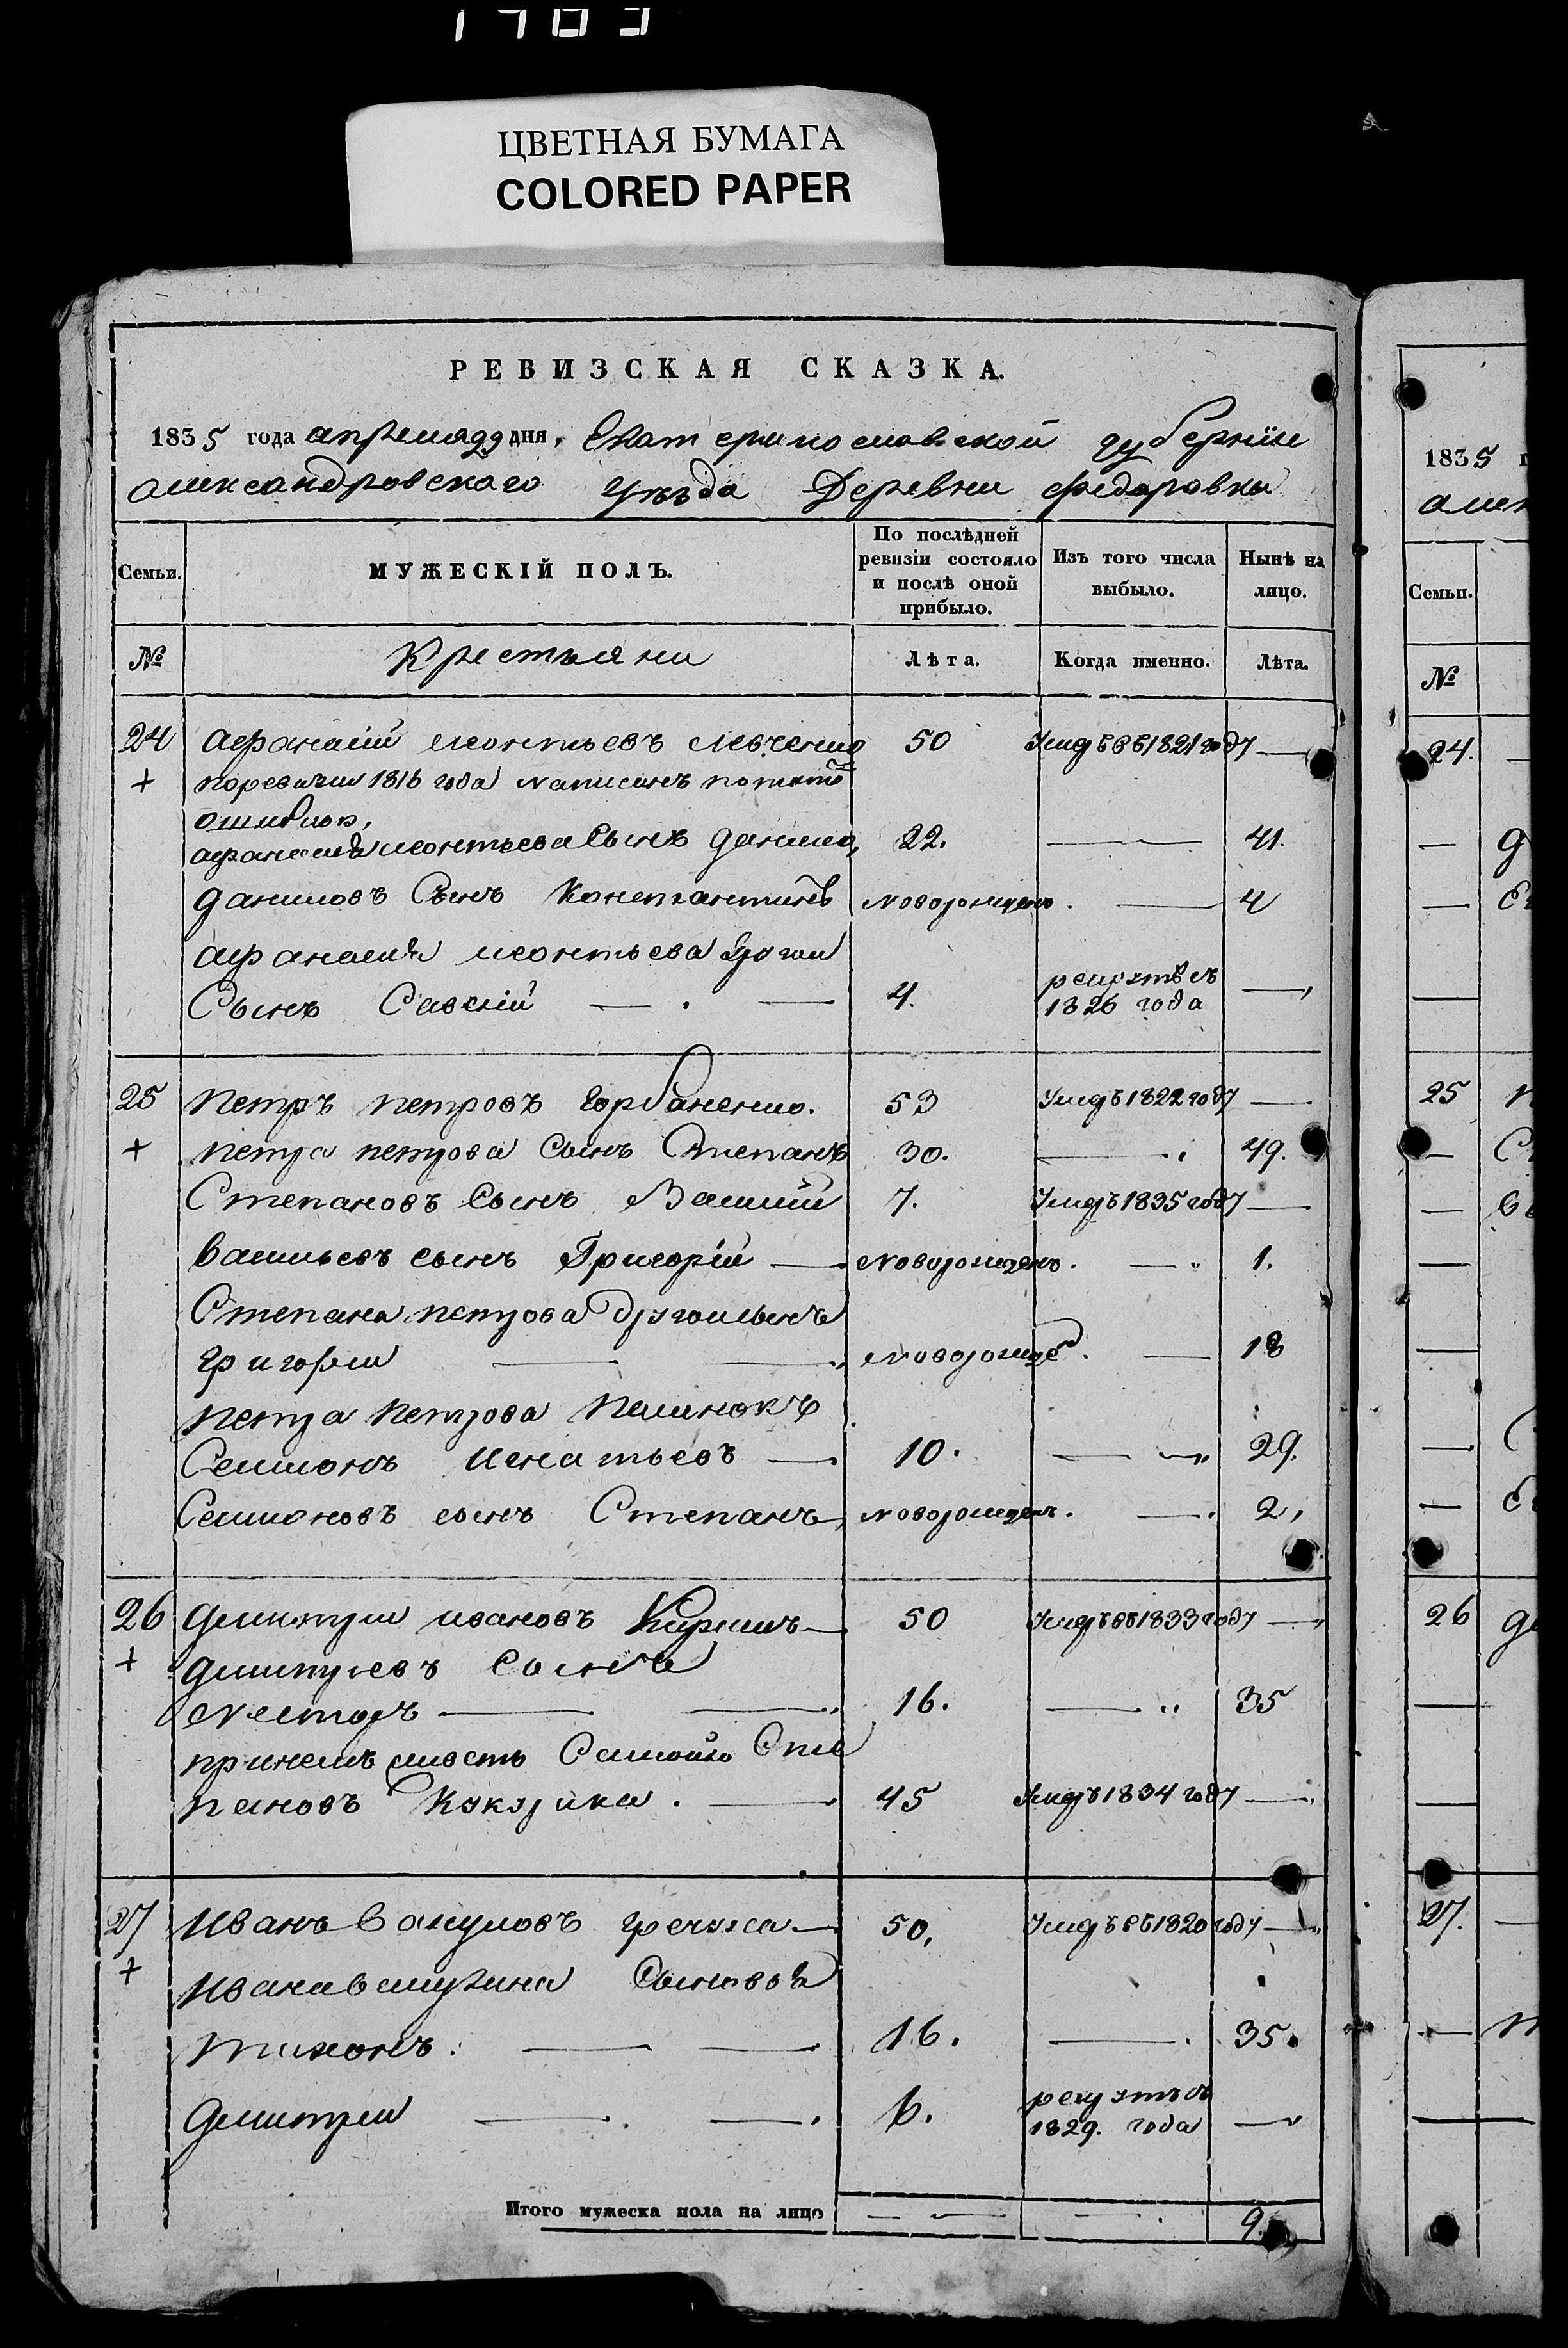 ЦВЕТНАЯ БУМАГА
COLORED PAPER
РЕВИЗСКАЯ СКАЗКА.
1835 года апреля 29 дня, Екатеринославской губерніи
александровского Уѣзда Деревни Федоровки
Семьи. МУЖЕСКІЙ ПОЛЪ. По послѣдней ревизіи состояло и послѣ оной прибыло. Изъ того числа выбыло. Нынѣ на лицо.
№ Крестьяни Лѣта. Когда именно. Лѣта.
24 Афанасій леонтьевъ левченко 50 Умеръ въ 1821 году
+ поревизіи 1816 года написанъ
ошибкою,
афанасія леонтьева Сынъ данило, 22. 41.
даниловъ Сынъ Константинъ новорожденъ. 4
афанасія леонтьева другой
Сынъ Савелій 4. рекрутъ съ 1826 года
25 петръ петровъ горбаненко. 53 Умеръ 1822 году
+ петра петрова Сынъ Степанъ 30. 49.
Степановъ Сынъ Василій 7. Умеръ 1835 году
васильевъ сынъ Григорій новорожденъ. 1.
Степана петрова другой сынъ
григорій новорожде. 18
петра петрова племянокъ
Семионъ игнатьевъ 10. 29.
Семионовъ сынъ Степанъ, новорожден. 2,
26 дмитрій ивановъ 50 Умеръ въ 1833 году
+ дмитріевъ Сынъ
несторъ 16. 35
Самойло Сте
пановъ 45 Умеръ 1834 году
27 иванъ вакуловъ гречка 50, Умеръ въ 1820 году
+ ивана вакулина Сыновья
тихонъ. 16. 35.
дмитрій 6. рекрутъ съ 1829. года
Итого мужеска пола на лицо 9.
1835
Семьи.
№
24.
25
26
27.